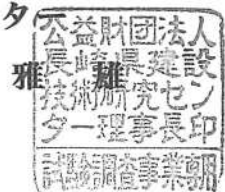 タ
雅 雄
公益財団法人
長崎県建設
技術研究セン
ター理事長印
試験調査事業